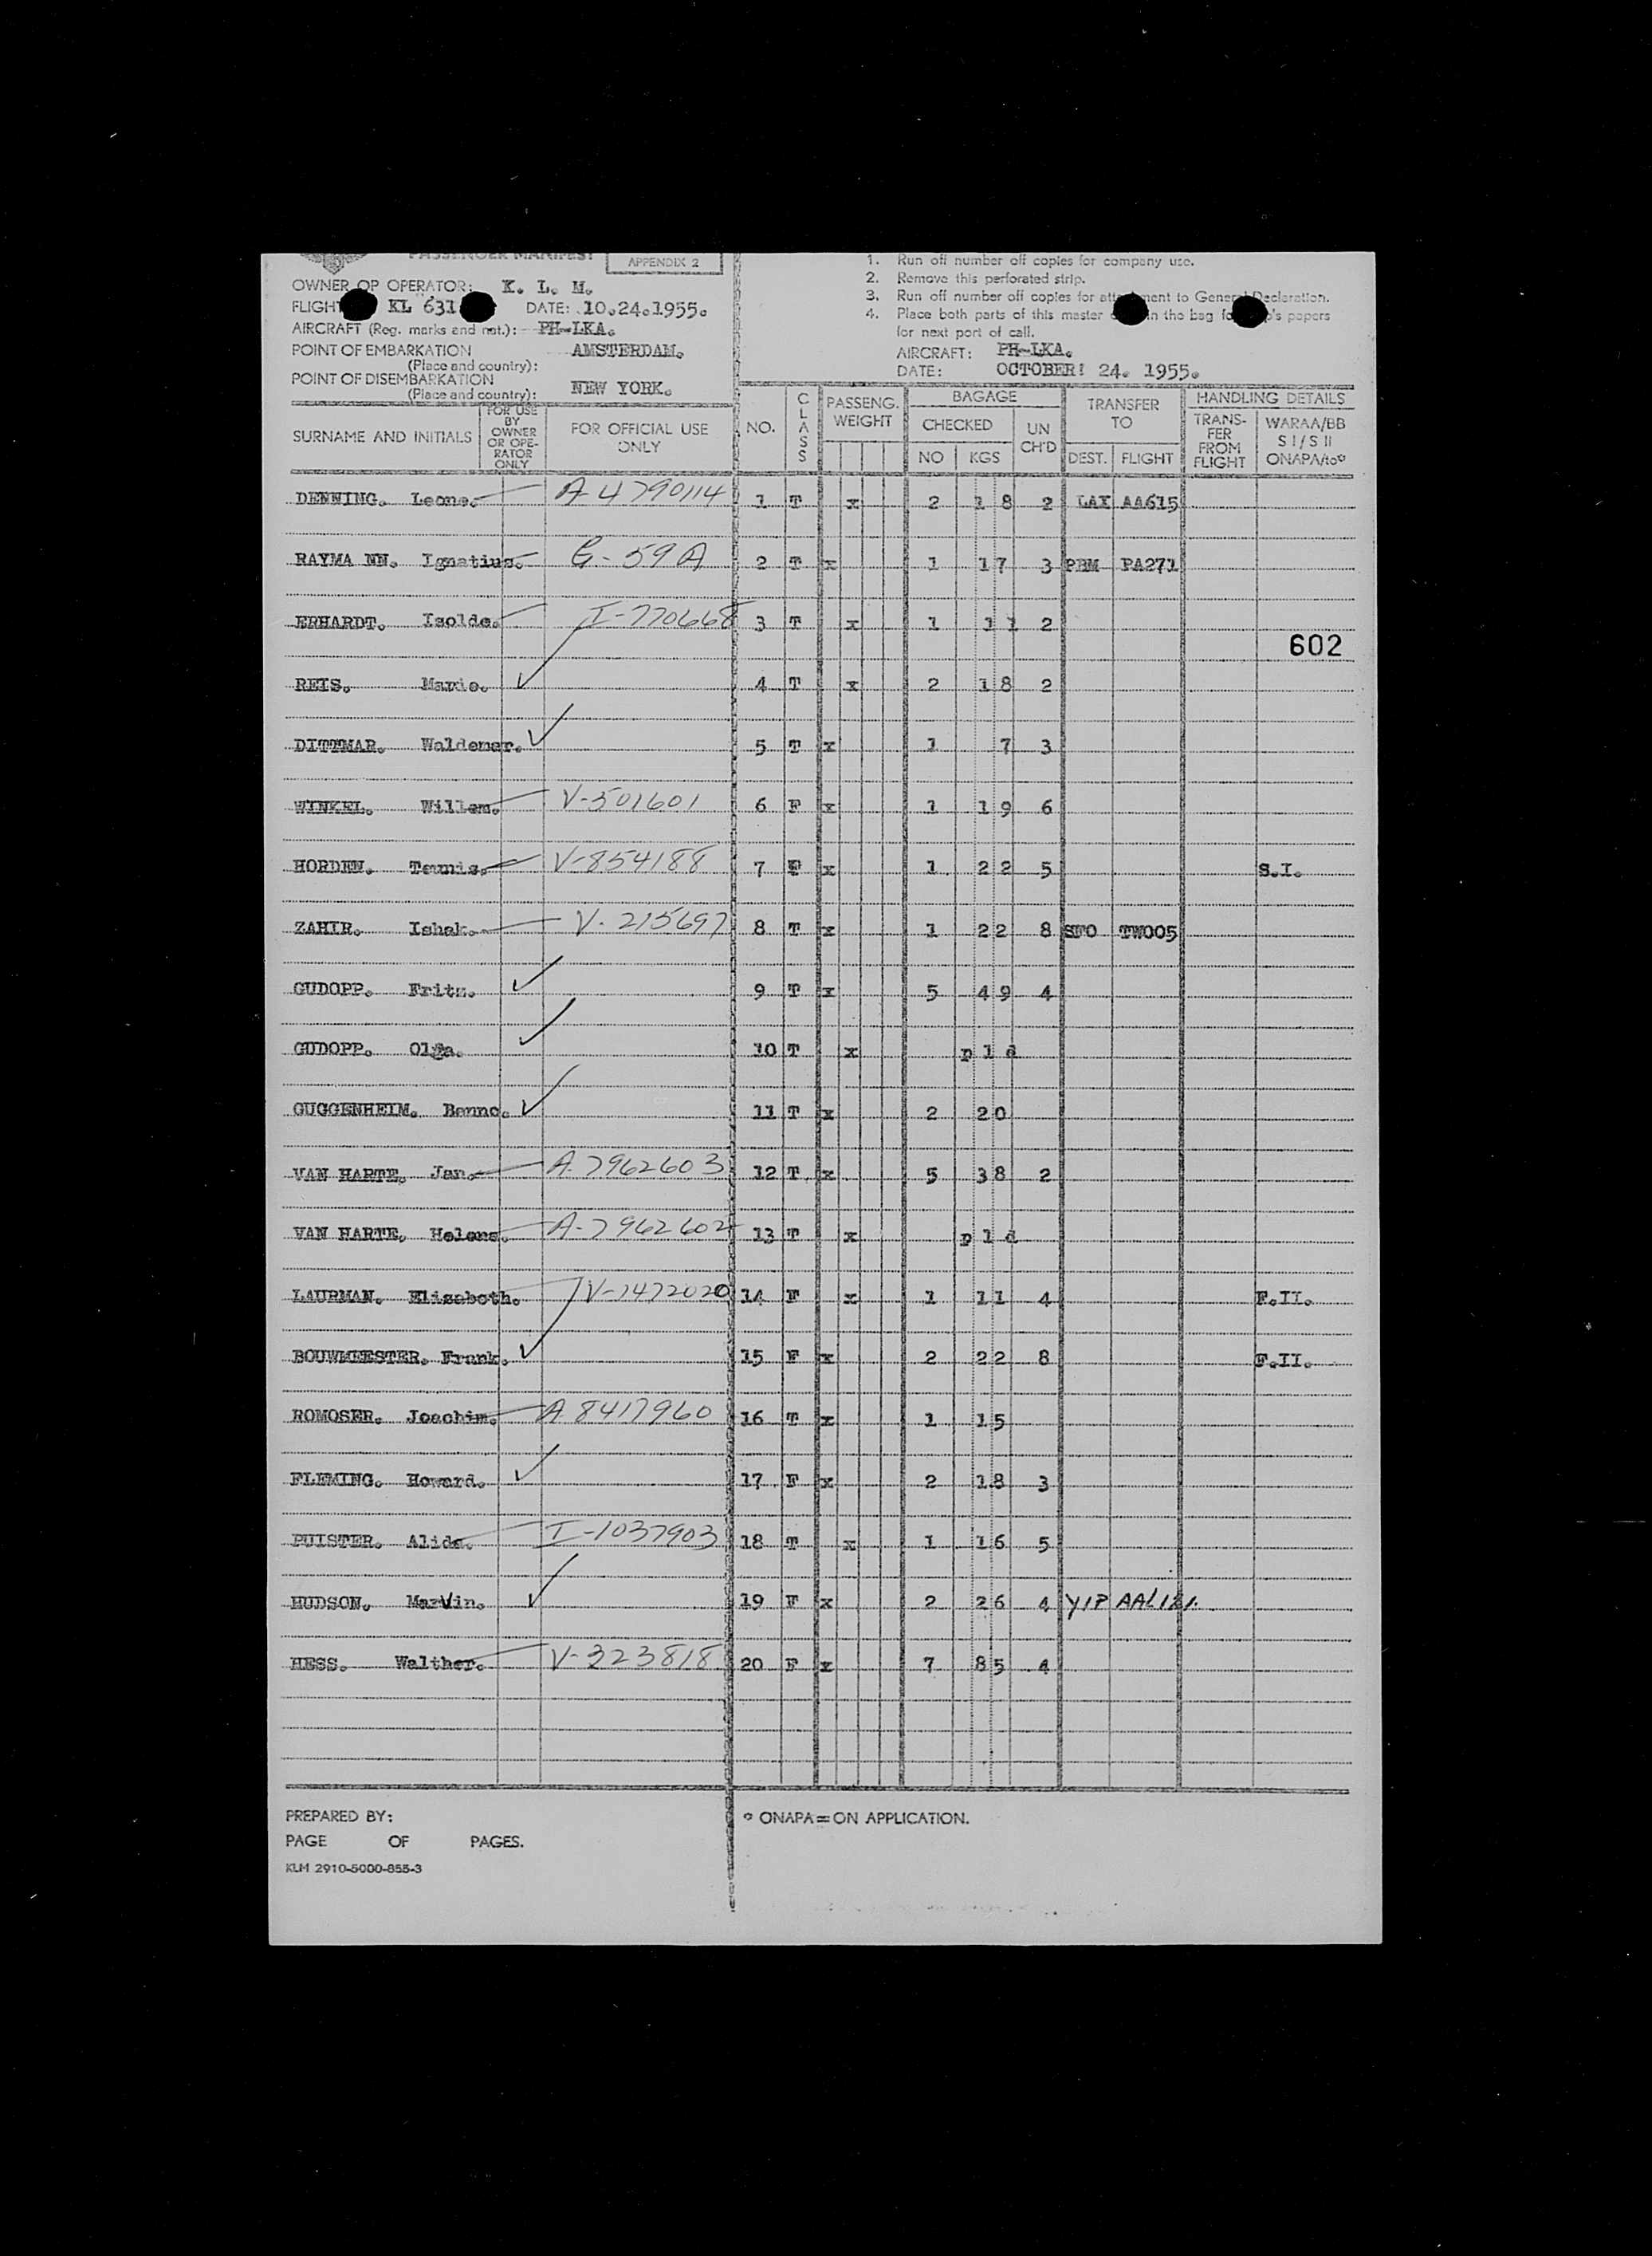 PASSENGER MANIFEST APPENDIX 2
OWNER OP OPERATOR: K. L. M.
FLIGHT KL 631 DATE: 10.24.1955.
AIRCRAFT (Reg. marks and nat.): PH-LKA.
POINT OF EMBARKATION AMSTERDAM.
(Place and country):
POINT OF DISEMBARKATION
(Place and country): NEW YORK.
1. Run off number off copies for company use.
2. Remove this perforated strip.
3. Run off number off copies for to General Declaration.
4. Place both parts of this master in the bag papers
for next port of call.
AIRCRAFT: PH-LKA.
DATE: OCTOBER! 24. 1955.
SURNAME AND INITIALS FOR USE BY OWNER OR OPE-RATOR ONLY FOR OFFICIAL USE ONLY NO. CLASS PASSENG. WEIGHT BAGAGE CHECKED NO KGS UN CH'D TRANSFER TO DEST. FLIGHT HANDLING DETAILS TRANS-FER FROM FLIGHT WARAA/BB S I/S II ONAPA/to*
DENNING. Leone. A-4790114 1 T x 2 18 2 LAX AA615
RAYMA NN. Ignatius. G-59A 2 T x 1 17 3 PBM PA271
ERHARDT. Isolde. I-770668 3 T x 1 11 2
602
REIS. Marie. ✓ 4 T x 2 18 2
DITTMAR. Waldemar. ✓ 5 T x 1 7 3
WINKEL. Willem. V-501601 6 F x 1 19 6
HORDEN. Teunis. V-854188 7 F x 1 22 5 S.I.
ZAHIR. Ishak. V-215697 8 T x 1 22 8 STO TW005
GUDOPP. Fritz. ✓ 9 T x 5 49 4
GUDOPP. Olga. ✓ 10 T x pld
GUGGENHEIM. Benno. ✓ 11 T x 2 20
VAN HARTE. Jan. A-7962603 12 T x 5 38 2
VAN HARTE. Helena. A-7962602 13 T x pld
LAURMAN. Elisabeth. V-1472020 14 F x 1 11 4 F.II.
BOUWMEESTER. Frank. ✓ 15 F x 2 22 8 F.II.
ROMOSER. Joachim. A 8417960 16 T x 1 15
FLEMING. Howard. ✓ 17 F x 2 18 3
PUISTER. Alida. I-1037903 18 T x 1 16 5
HUDSON. Marvin. ✓ 19 F x 2 26 4 YIP
HESS. Walther. V-323818 20 F x 7 85 4
PREPARED BY: * ONAPA=ON APPLICATION.
PAGE OF PAGES.
KLM 2910-5000-855-3